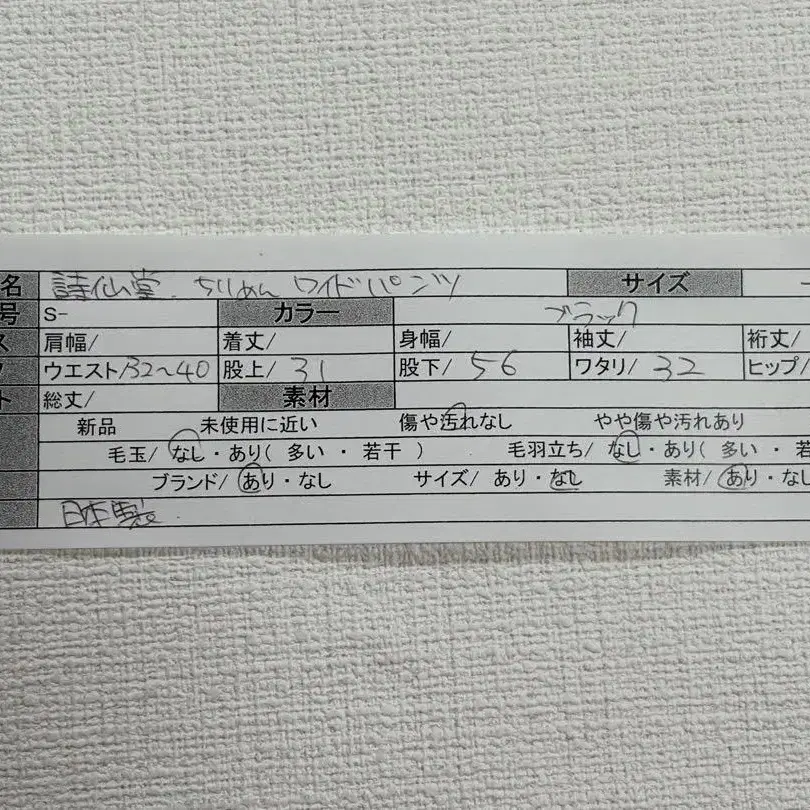 名 詩仙堂. ちりめん ワイドパンツ サイズ
号 S- カラー ブラック
ス 肩幅/ 着丈/ 身幅/ 袖丈/ 裄丈/
ウエスト/32~40 股上/ 31 股下/ 56 ワタリ/ 32 ヒップ/
ト 総丈/ 素材
新品 未使用に近い 傷や汚れなし やや傷や汚れあり
毛玉/ なし・あり( 多い ・ 若干 ) 毛羽立ち/ なし・あり( 多い ・ 若
ブランド/ あり・なし サイズ/ あり・なし 素材/ あり・なし
日本製.